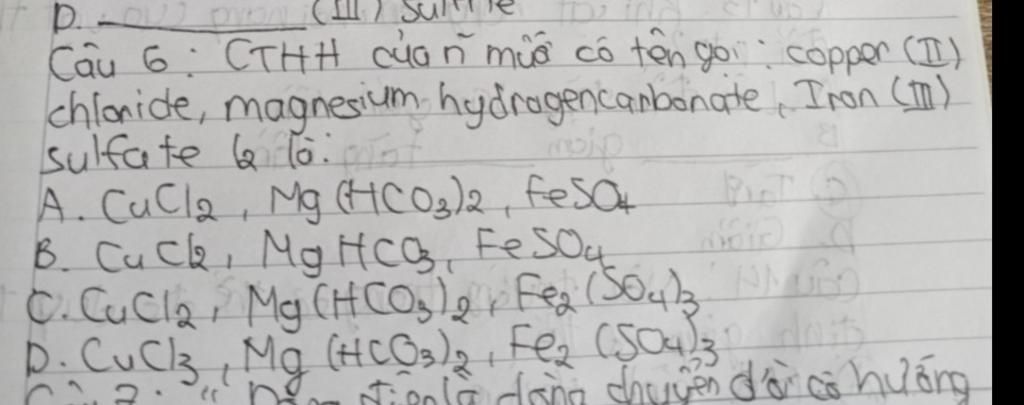 D. __________ (III) sulfite
Câu 6: CTHH của ñ muố có tên gọi: copper (II)
chloride, magnesium hydrogencarbonate, Iron (III)
sulfate là:
A. CuCl2, Mg(HCO3)2, FeSO4
B. CuCl2, MgHCO3, FeSO4
C. CuCl2, Mg(HCO3)2, Fe2(SO4)3
D. CuCl3, Mg(HCO3)2, Fe2(SO4)3
điện là dòng chuyển dời có hướng